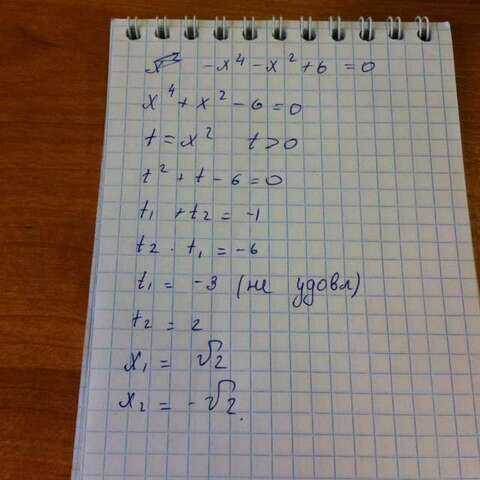 -x⁴ - x² + 6 = 0
x⁴ + x² - 6 = 0
t = x² t > 0
t² + t - 6 = 0
t₁ + t₂ = -1
t₂ · t₁ = -6
t₁ = -3 (не удовл)
t₂ = 2
x₁ = √2
x₂ = -√2.